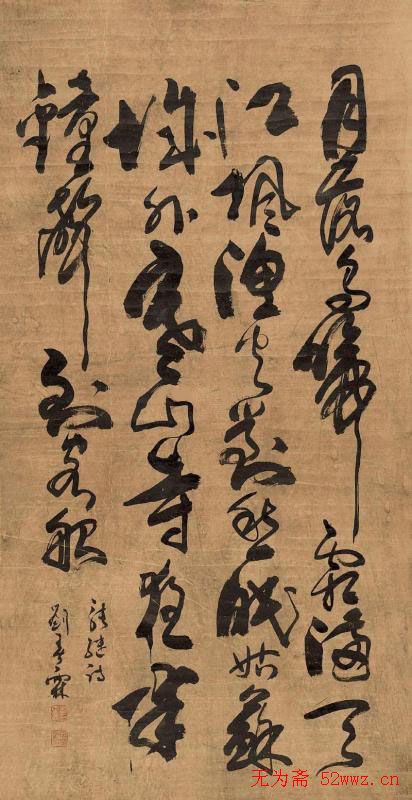 月落烏啼霜滿天
江楓漁火對愁眠姑蘇
城外寒山寺夜半
鐘聲到客船
張繼詩
劉春霖
无为斋 52wwz.cn